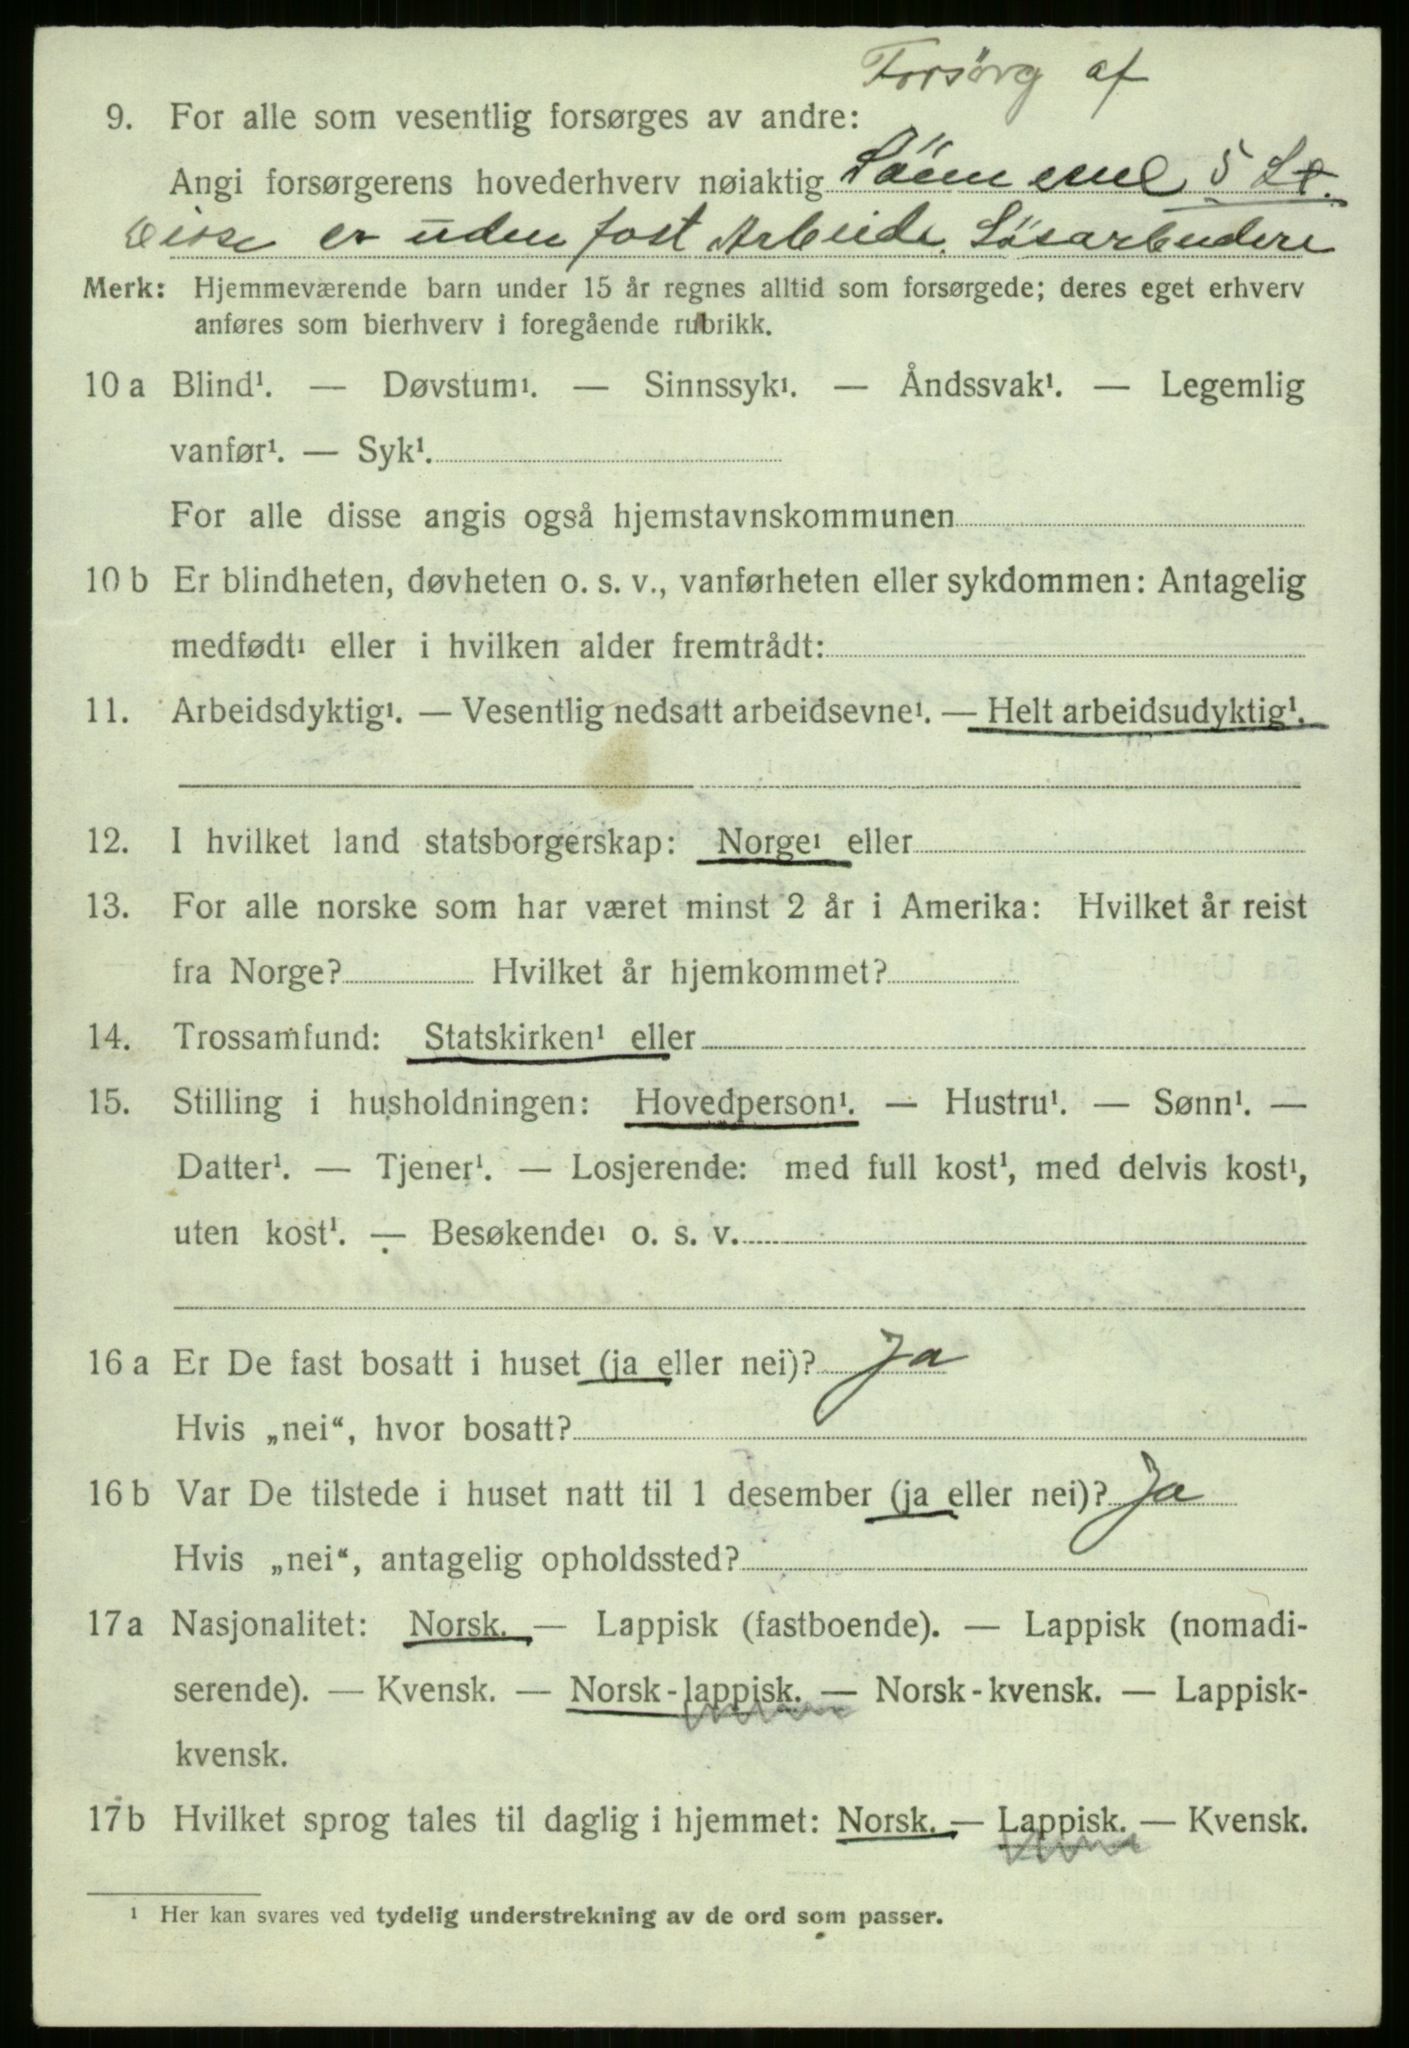 Forsörg af
9. For alle som vesentlig forsørges av andre:
Angi forsørgerens hovederhverv nøiaktig Sönnerne 5 St.
Disse er uden fast Arbeide. Lösarbeidere
Merk: Hjemmeværende barn under 15 år regnes alltid som forsørgede; deres eget erhverv
anføres som bierhverv i foregående rubrikk.
10 a Blind¹. — Døvstum¹. — Sinnssyk¹. — Åndssvak¹. — Legemlig
vanfør¹. — Syk¹.
For alle disse angis også hjemstavnskommunen
10 b Er blindheten, døvheten o. s. v., vanførheten eller sykdommen: Antagelig
medfødt¹ eller i hvilken alder fremtrådt:
11. Arbeidsdyktig¹. — Vesentlig nedsatt arbeidsevne¹. — Helt arbeidsudyktig¹.
12. I hvilket land statsborgerskap: Norge¹ eller
13. For alle norske som har været minst 2 år i Amerika: Hvilket år reist
fra Norge? Hvilket år hjemkommet?
14. Trossamfund: Statskirken¹ eller
15. Stilling i husholdningen: Hovedperson¹. — Hustru¹. — Sønn¹. —
Datter¹. — Tjener¹. — Losjerende: med full kost¹, med delvis kost¹,
uten kost¹. — Besøkende¹ o. s. v.
16 a Er De fast bosatt i huset (ja eller nei)? Ja
Hvis „nei“, hvor bosatt?
16 b Var De tilstede i huset natt til 1 desember (ja eller nei)? Ja
Hvis „nei“, antagelig opholdssted?
17 a Nasjonalitet: Norsk. — Lappisk (fastboende). — Lappisk (nomadi-
serende). — Kvensk. — Norsk-lappisk. — Norsk-kvensk. — Lappisk-
kvensk.
17 b Hvilket sprog tales til daglig i hjemmet: Norsk. — Lappisk. — Kvensk.
¹ Her kan svares ved tydelig understrekning av de ord som passer.